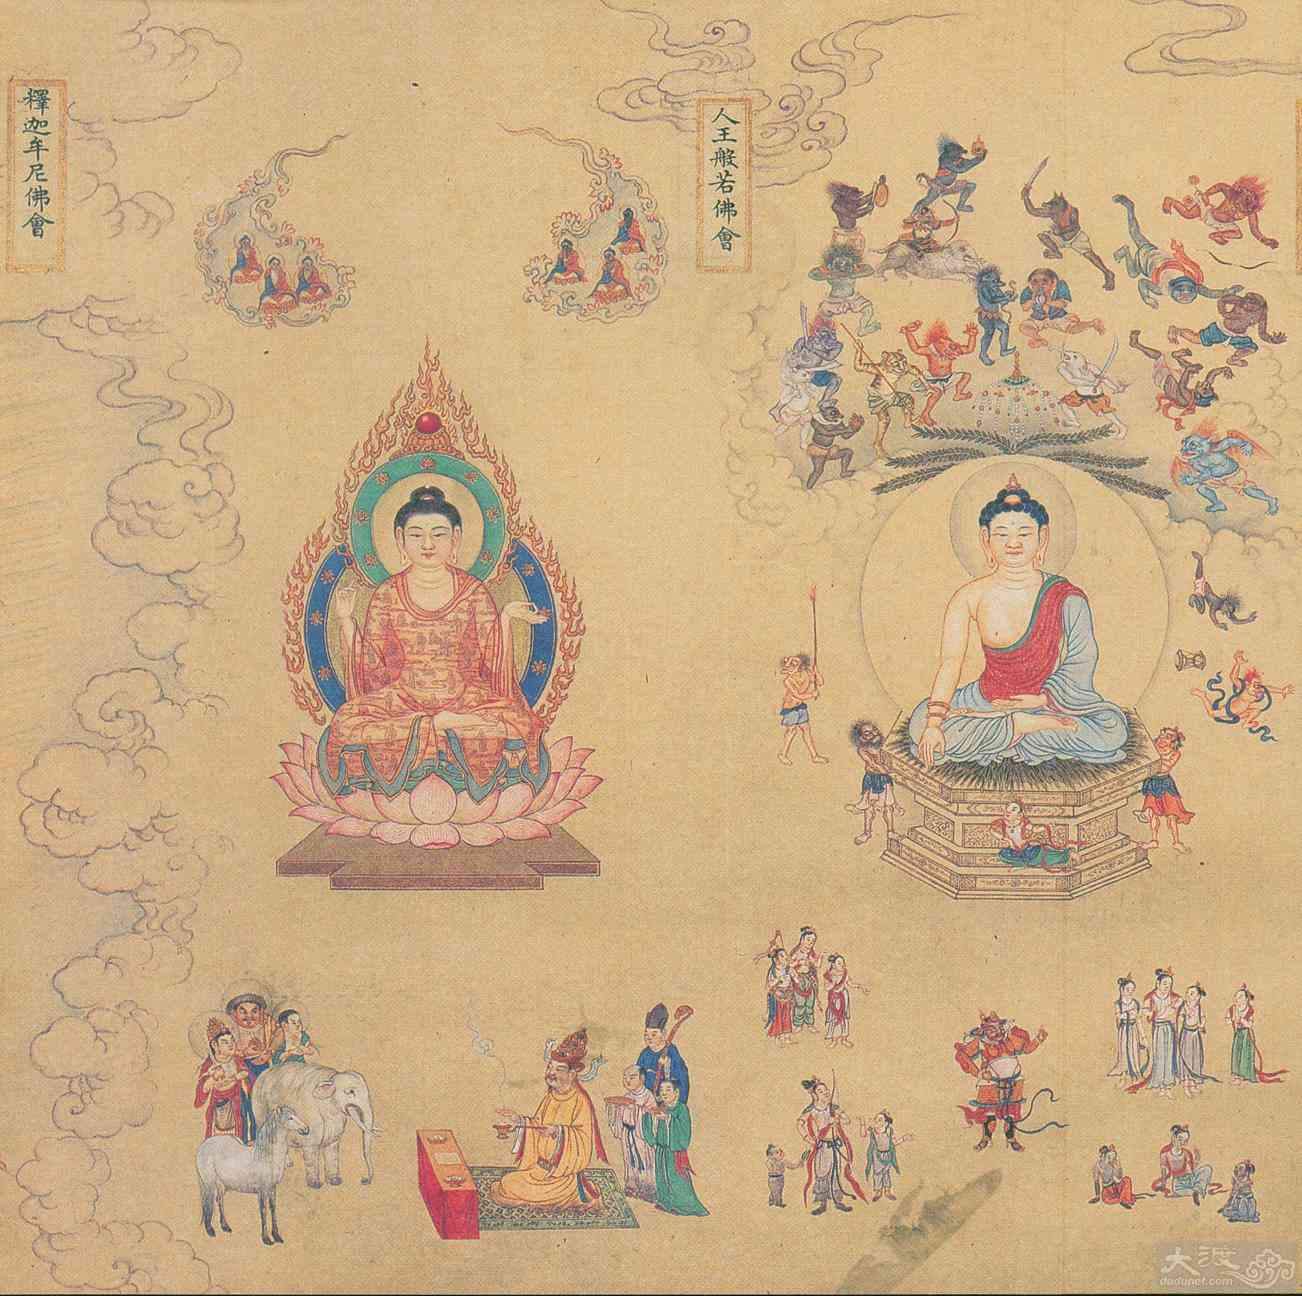 釋迦牟尼佛會
人王般若佛會
大渡
dadunet.com